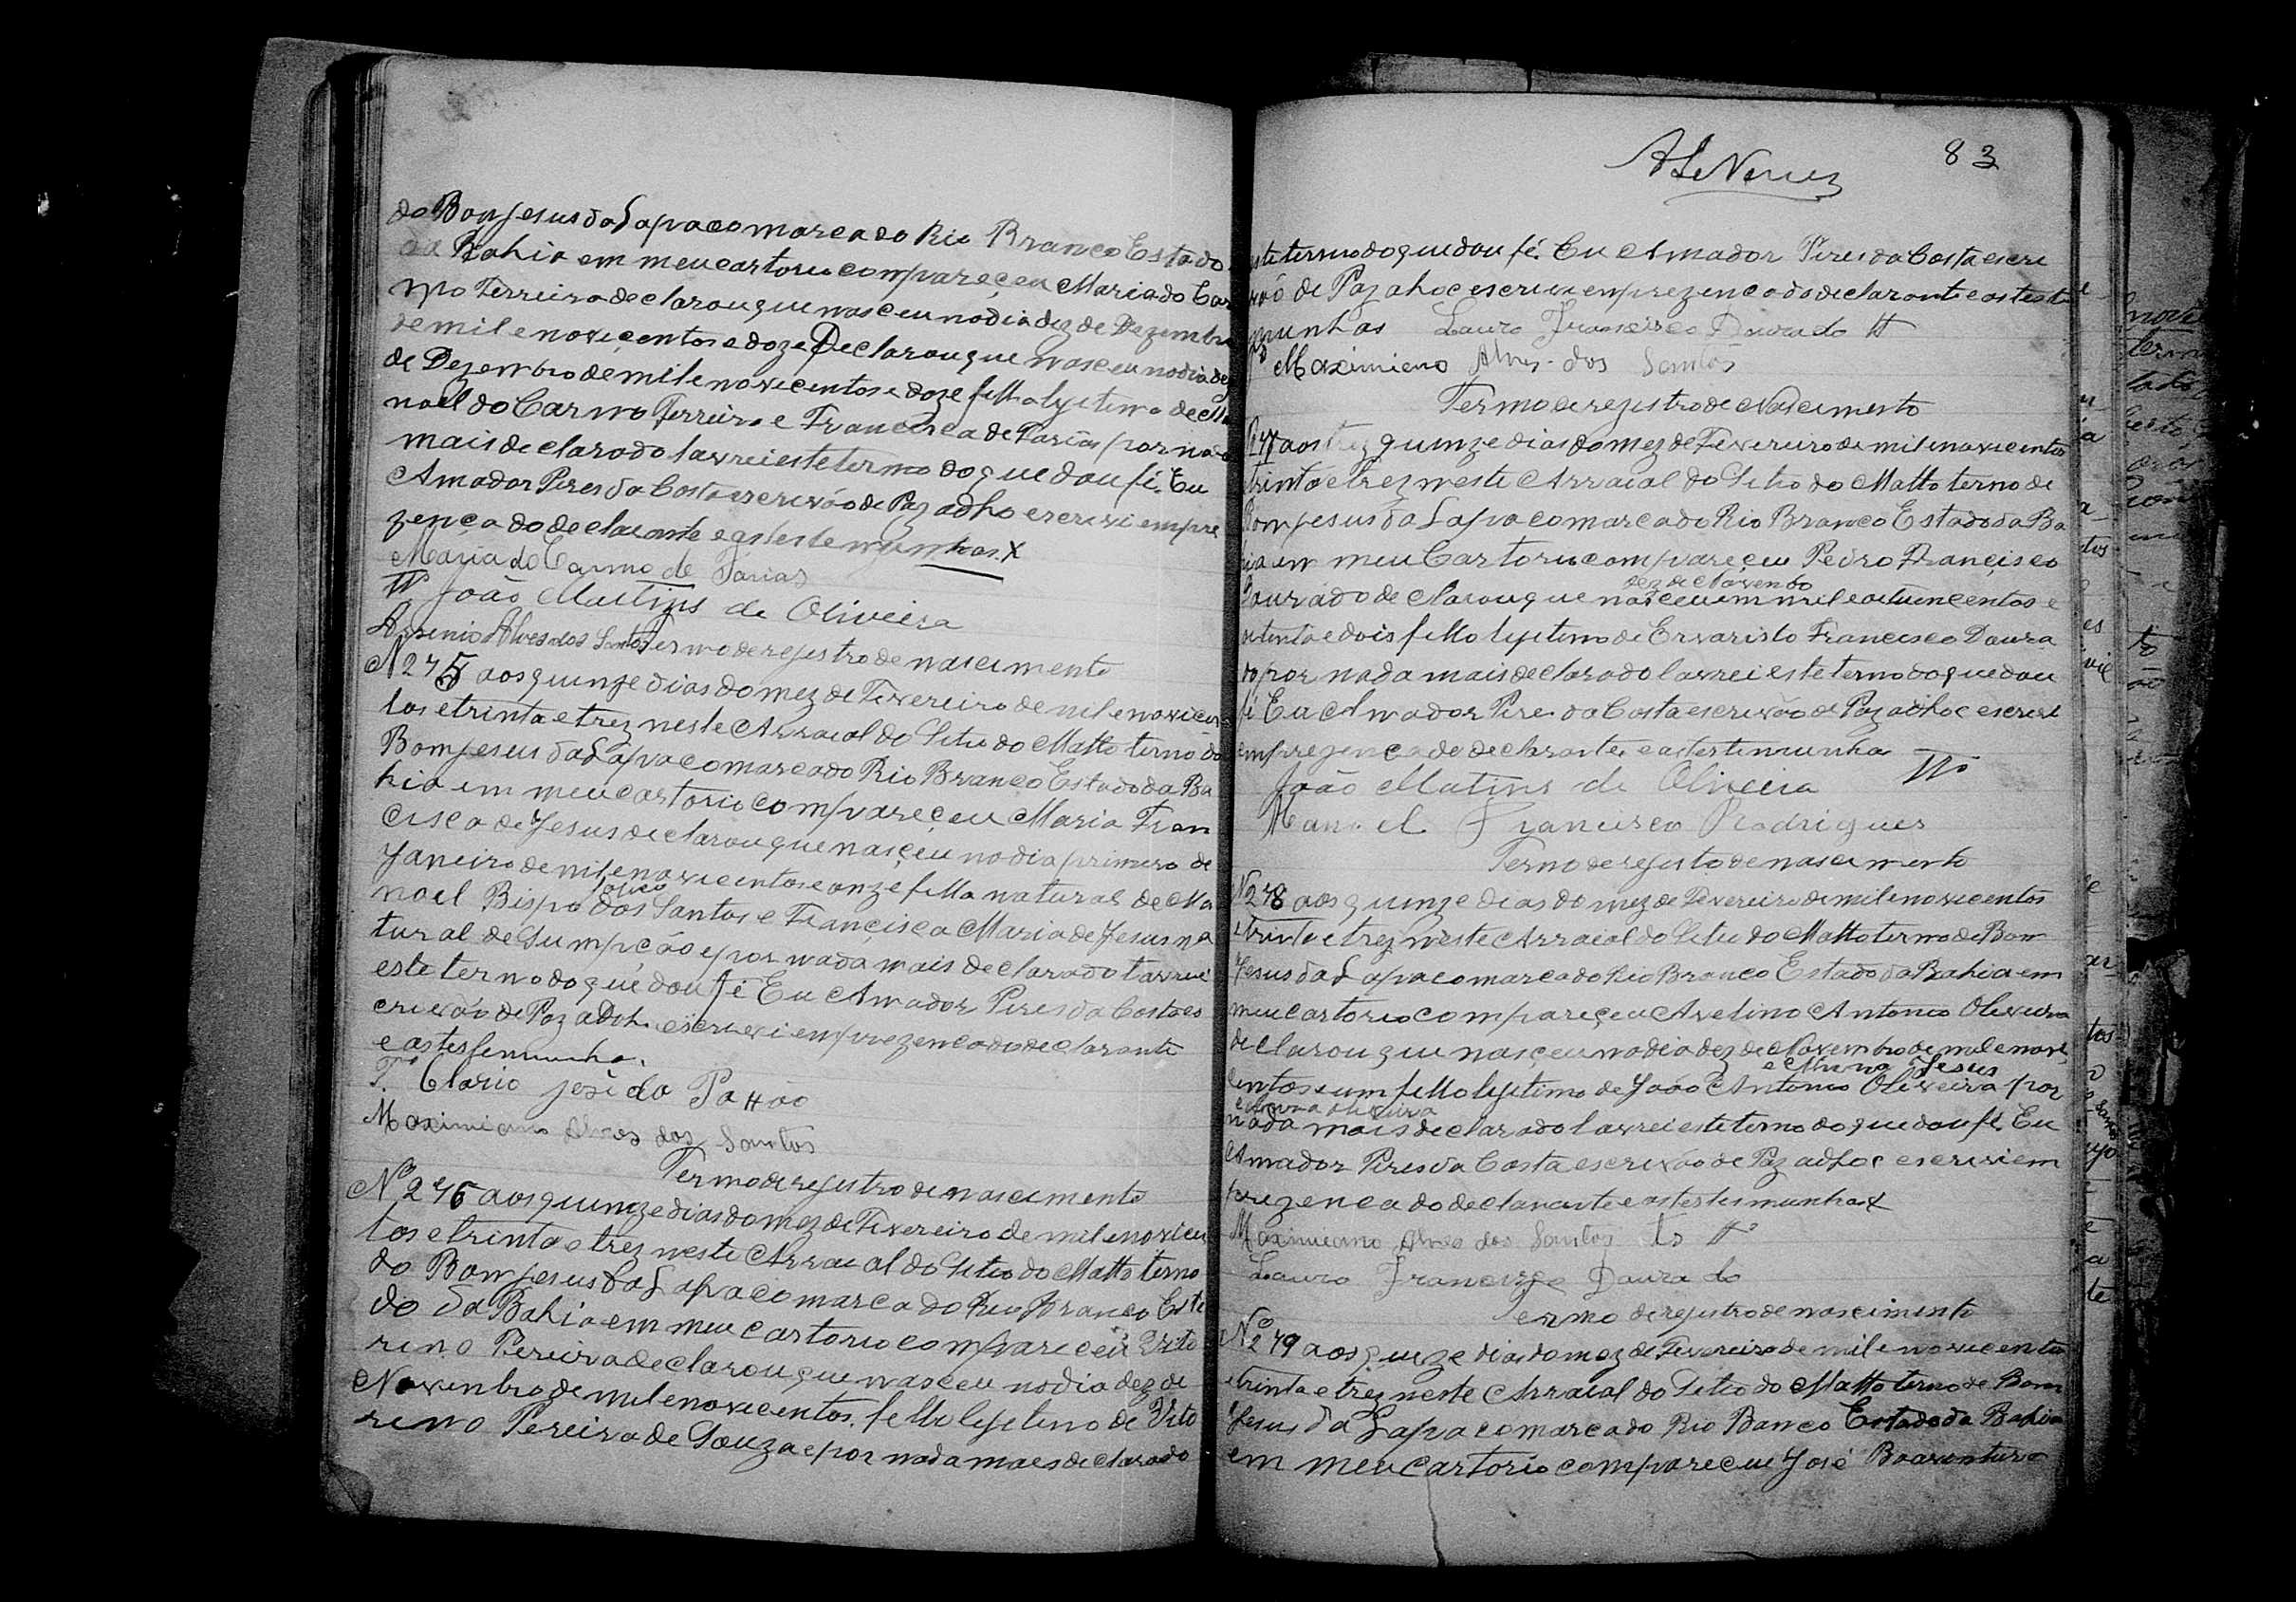 do Bom Jesus da Lapa comarca do Rio Branco Estado
da Bahia em meu cartorio compareçeu Maria do Car
mo Ferreira declarou que nasceu no dia dez de Dezembro
de mil e novicentos e doze Declarou que nasceu no dia dez
de Dezembro de mil e novicentos e doze filha lejetima de Ma
noel do Carmo Ferreira e Francisca de Farias por nada
mais declarado lavrei este termo do que dou fé. Eu
Amador Peres da Costa escrivão de Paz adho escrevi em pre
zença do declarante e as testemunhas X
Maria do Carmo de Farias
Tª João Martins de Oliveira
Arsenio Alves dos Santos Termo de rejestro de nascimento
N 275 aos quinze dias do mez de Fevereiro de mil e novicen
tos e trinta e trez neste Arraial do Setio do Matto termo do
Bom jesus da Lapa comarca do Rio Branco Estado da Ba
hia em meu cartorio compareçeu Maria Fran
cisca de Jesus declarou que nasçeu no dia primero de
Janeiro de mil e novicentos e onze filha natural de Ma
noel Bispo dos Santos e Françisca Maria de Jesus na
tural de Sumpcão e por nada mais declarado lavrei
este termo do que dou fé Eu Amador Peres da Costa es
crivão de Paz adoh. escrevi em prezenca do declarante
e as testemunha.
T. Clario José da Paxão
Maximiano Alves dos Santos
Termo de rejestro de nascimento
Nº 276 aos quinze dias do mez de Fevereiro de mil e novicen
tos e trinta e trez neste Arraial do Setio do Matto termo
do Bom jesus da Lapa comarca do Rio Branco Esta
do da Bahia em meu cartorio compareceu Vito
rino Pereira declarou que nasceu no dia dez de
Novenbro de mil e novicentos. filho lejetimo de Vito
rino Pereira de Souza e por nada maes declarado
83
este termo do que dou fé. Eu Amador Peres da Costa escri
vão de Paz ahoc escrevi em prezenca do declarante e as teste
munhas Lauro Francisco Dourado Tª
Maximiano Alves dos Santos
Termo de rejestro de Nascimento
277 aos trez quinze dias do mez de Fevereiro de mil e novicentos
trinta e trez neste Arraial do Setio do Matto termo de
Bom jesus da Lapa comarca do Rio Branco Estado da Ba
hia em meu Cartorio compareçeu Pedro Françisco
dez de Novenbo
Dourado declarou que nasceu em mil e oitucencentos e
setenta e dois filho lejetimo de Ervaristo Francisco Doura
do por nada mais declarado lavrei este termo do que dou
fé Eu Amador Pere da Costa escrivão de Paz adhoc escrevi
em prezença do declarante e as testemunha
João Matins de Oliveira Tª
Manoel Francisco Rodrigues
Termo de rejisto de nascimento
Nº 278 aos quinze dias do mez de Fevereiro de mil e novicentos
e trinta e trez neste Arraial do Setio do Matto termo de Bom
Jesus da Lapa comarca do Rio Branco Estado da Bahia em
meu cartorio compareçeu Avelino Antonio Oliveira
declarou que nasçeu no dia dez de Novembro de mil e novi
centos e um filho lejitimo de João Antonio Oliveira por
nada mais declarado lavrei este termo do que dou fé. Eu
Amador Peres da Costa escrivão de Paz adhoc escrevi em
prezenca do declarante e as testemunha X
Maximiano Alves dos Santos Ts Tª
Lauro Francisco Dourado
Termo de rejistro de nascimento
Nº 279 aos quize dias do mez de Fevereiro de mil e novicento
e trinta e trez neste Arraial do Setio do Matto termo de Bom
Jesus da Lapa comarca do Rio Banco Estado da Bahia
em meu cartorio compareceu José Boaventura